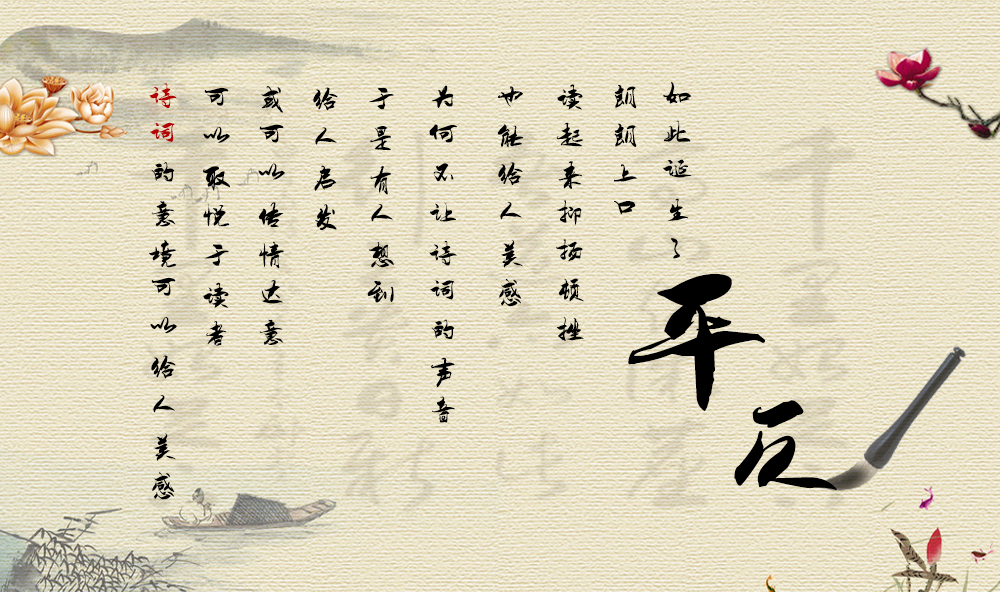 诗词的意境可以给人美感
可以取悦于读者
或可以传情达意
给人启发
于是有人想到
为何不让诗词的声音
也能给人美感
读起来抑扬顿挫
朗朗上口
如此诞生了
平仄